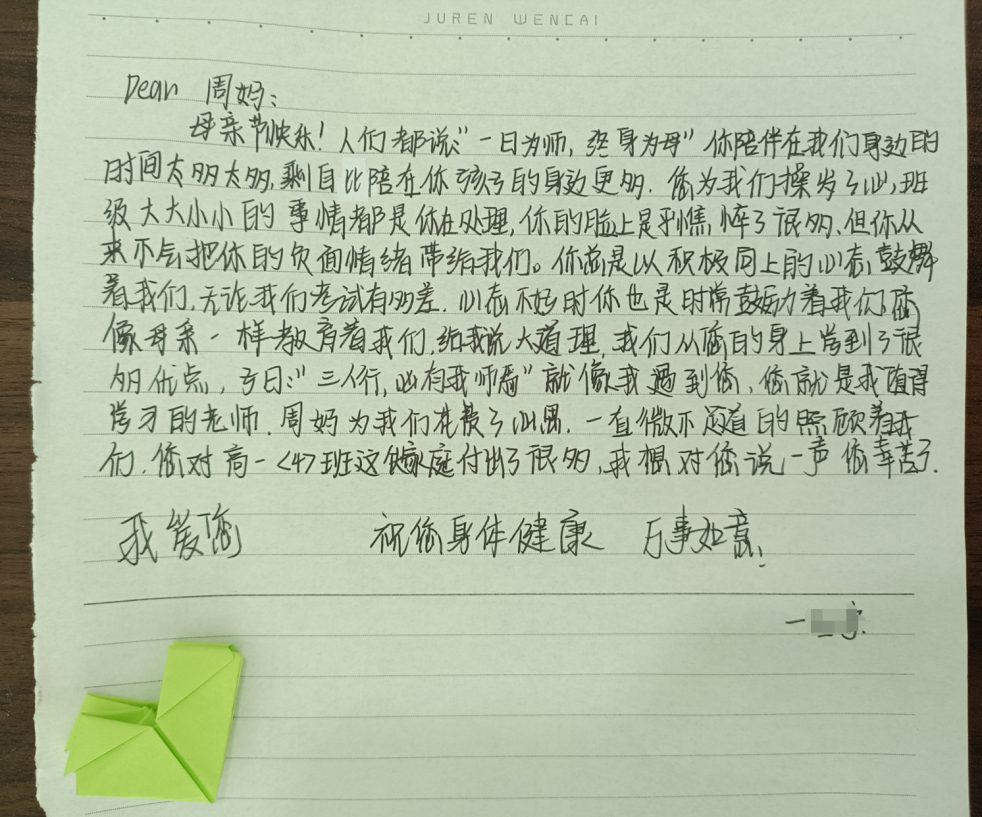 JUREN WENCAI
Dear 周妈:
母亲节快乐!人们都说:"一日为师,终身为母"你陪伴在我们身边的
时间太多太多,剩自比陪在你孩子的身边更多.您为我们操发了心,班
级大大小小的事情都是你在处理,你的脸上是憔悴了很多,但你从
来不会把你的负面情绪带给我们。你总是以积极向上的心态,鼓舞
着我们,无论我们考试有多差.心态不好时你也是时常鼓励着我们,您
像母亲一样教育着我们,给我说大道理,我们从您的身上学到了很
多优点,子曰:"三人行,必有我师焉"就像我遇到您,您就是我值得
学习的老师.周妈为我们花费了心思.一直微不足道的照顾着我
们.您对高一<4>班这个家庭付出了很多,我想对您说一声您幸苦了.
我爱您 祝您身体健康 万事如意,